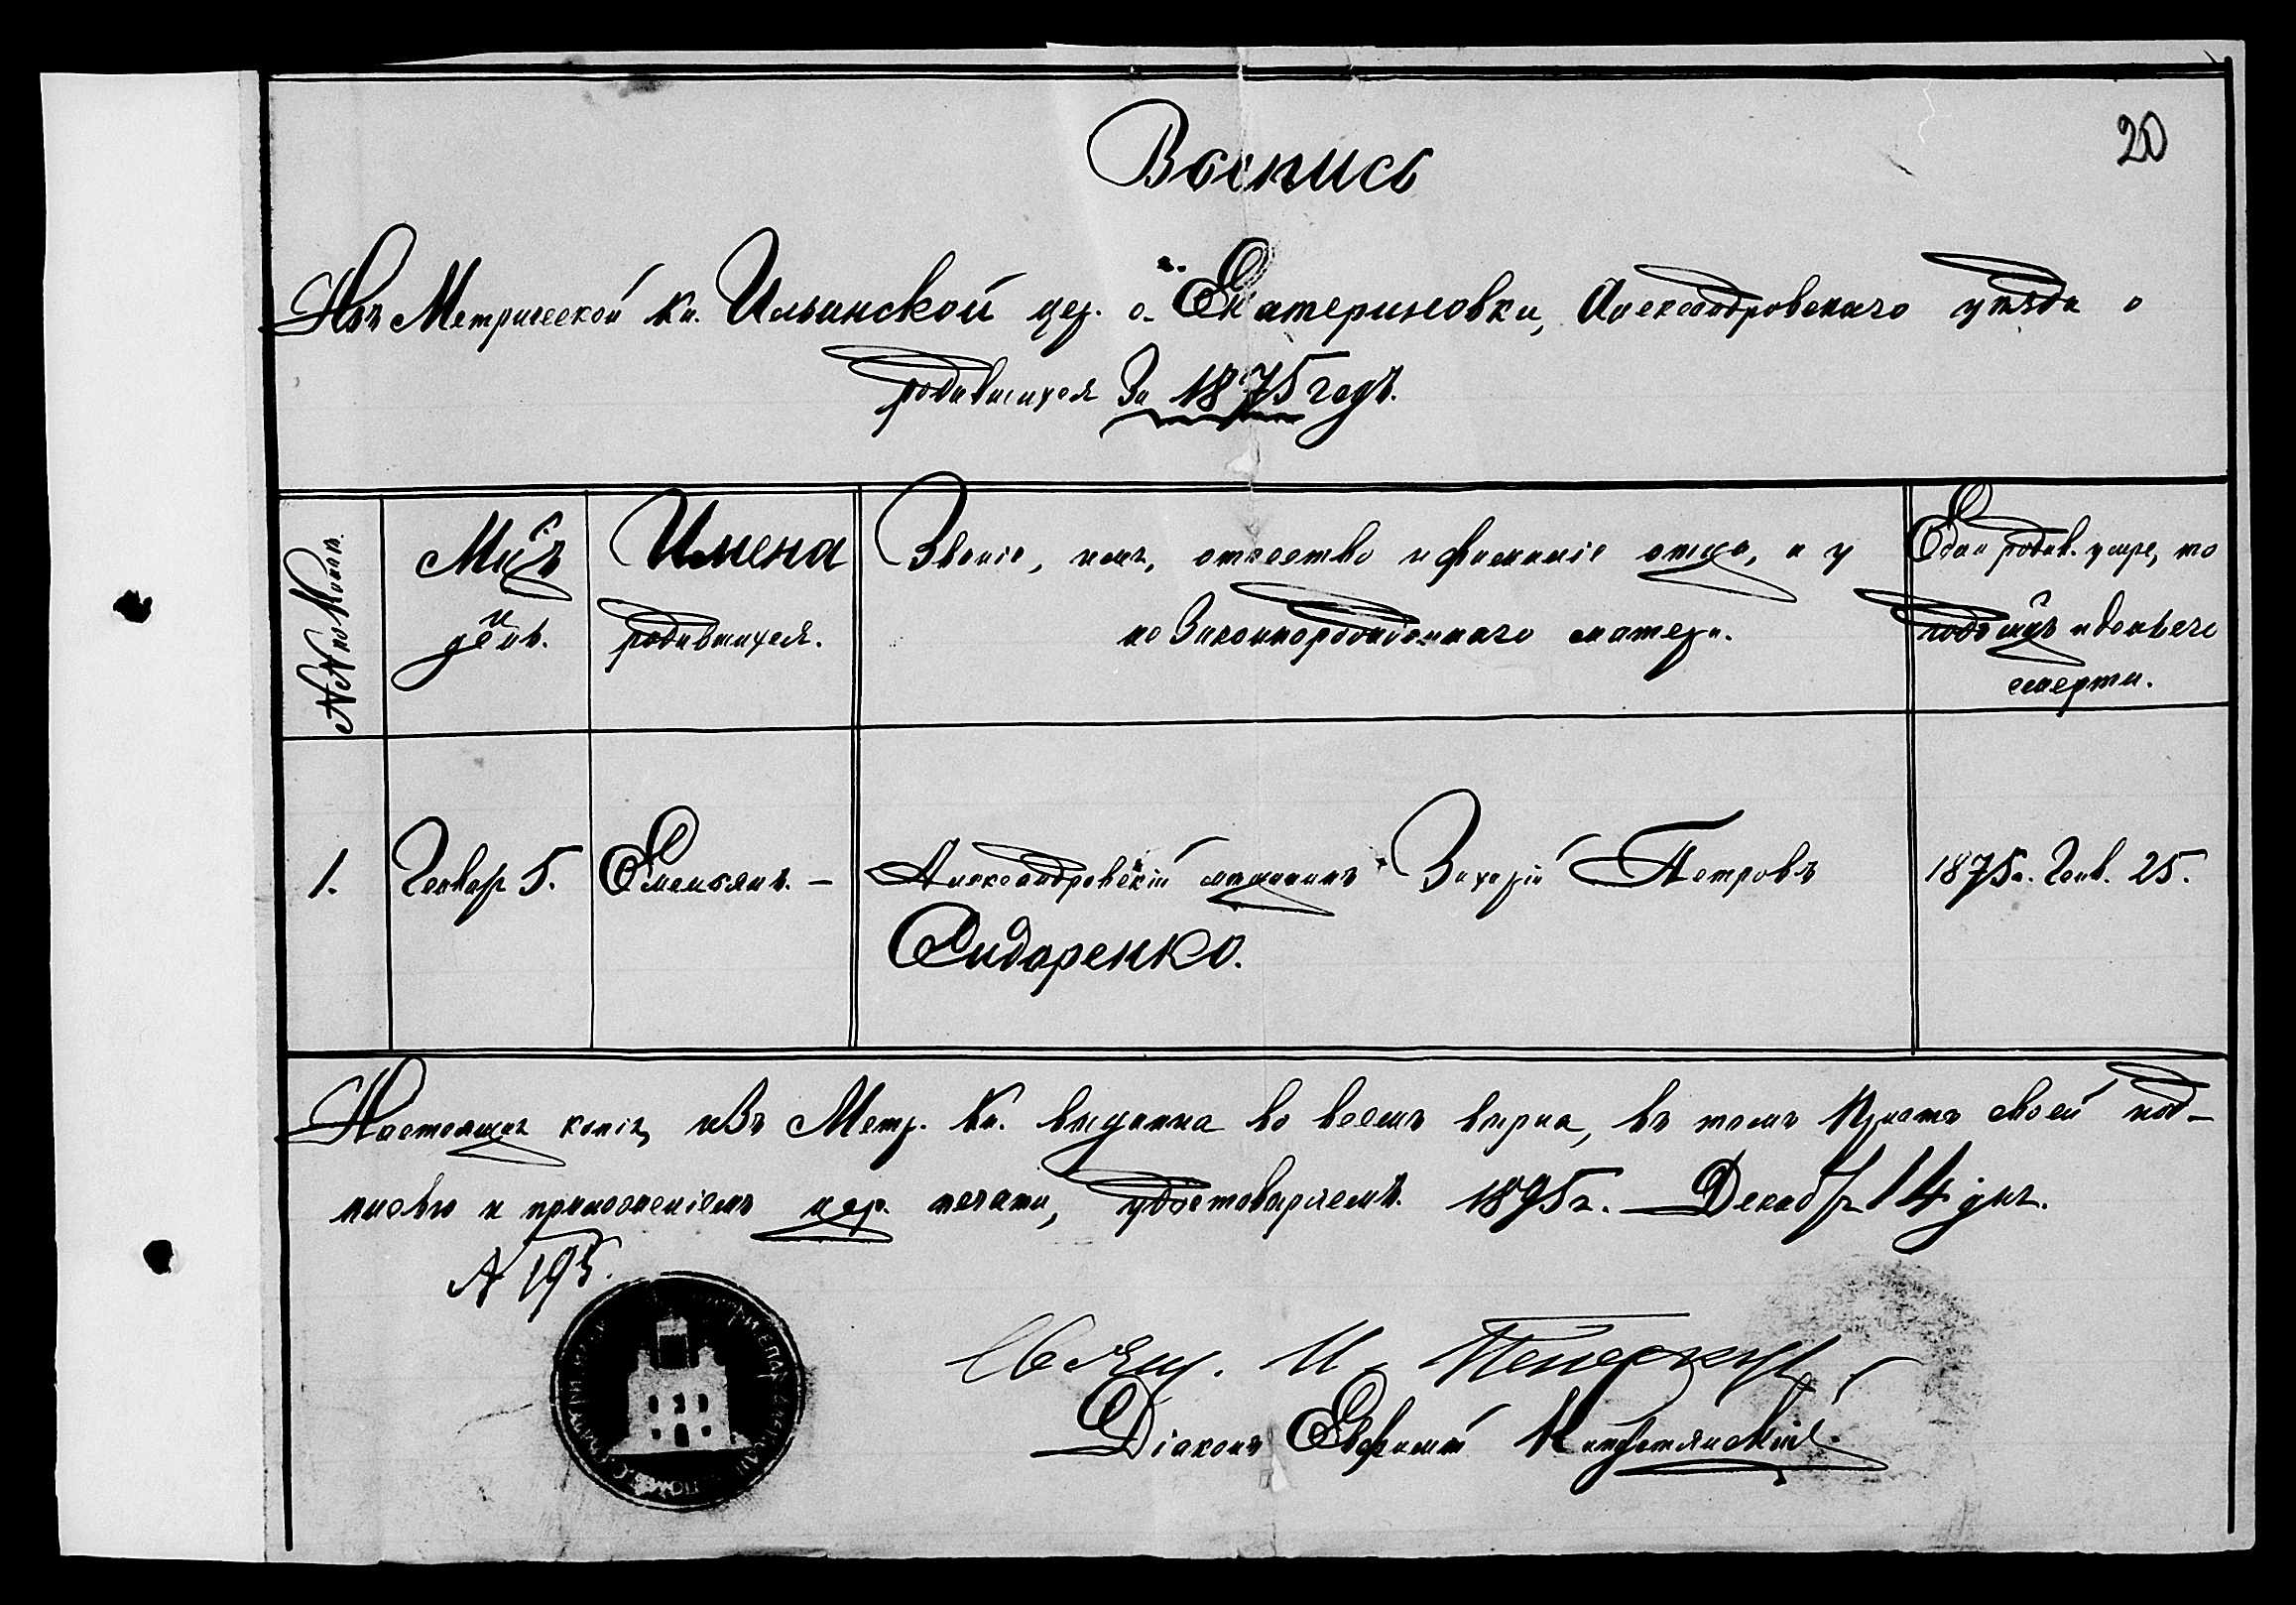 20
Выпись
Изъ Метрической Кн. Ильинской цер. с. Екатериновки, Александровскаго уѣзда о
родившихся За 1875 годъ.
№№ по Книгѣ.
Мцъ
и
день.
Имена
родившихся.
Званіе, имя, отчество и фамиліе отца, а у
не Законнорожденнаго матери.
Если родив. умре, то
годъ мцъ и день его
смерти.
1.
Генвар 5.
Емельянъ. –
Александровскій мѣщанинъ Захарій Петровъ
Сидоренко.
1875 г. Генв. 25.
Настоящая копія изъ Метр. Кн. выданна во всемъ вѣрна, въ томъ Причтъ своей под-
писью и приложеніемъ цер. печати, удостовѣряемъ. 1895 г. Декабр 14 дня.
№ 195.
Свящ. И.
Діаконъ Евфимій